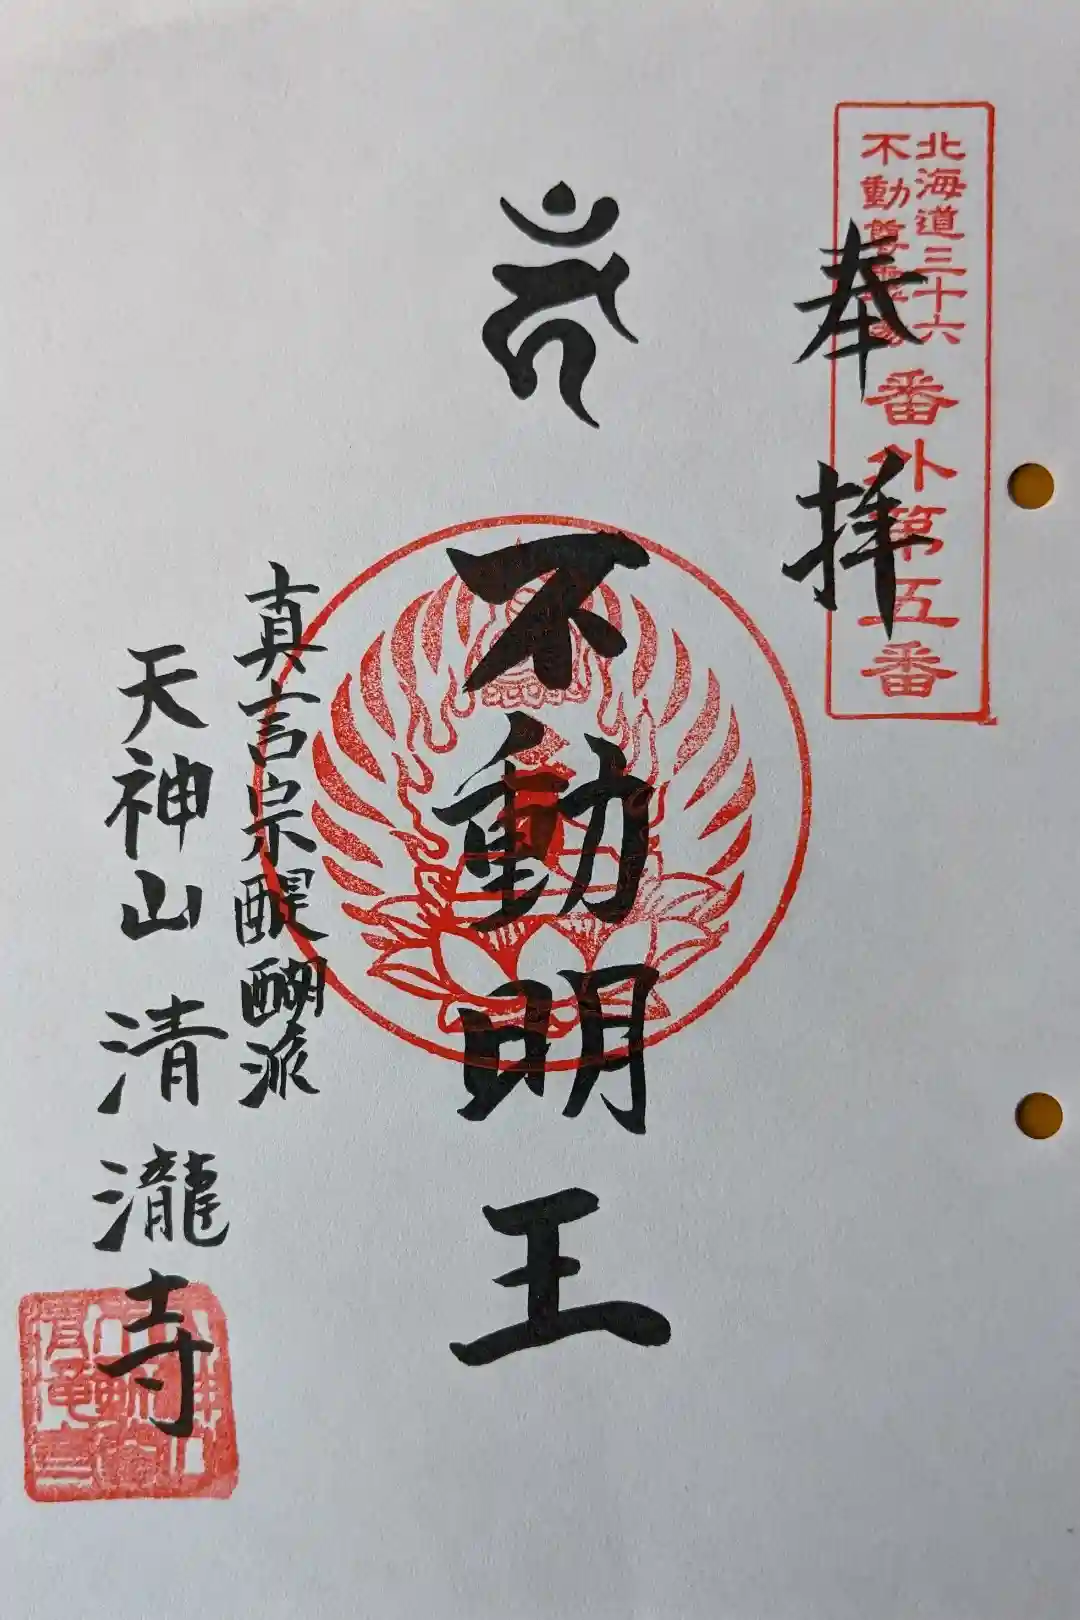 北海道三十六
不動尊霊場
番外第五番
奉拝
不動明王
真言宗醍醐派
天神山清瀧寺